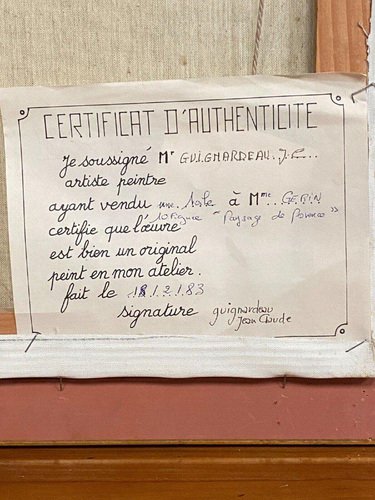 CERTIFICAT D'AUTHENTICITE
Je soussigné Mr GUIGNARDEAU. J.C...
artiste peintre
ayant vendu une toile à Mme. GERIN
10 Figure "Paysage de Provence"
certifie que l'œuvre
est bien un original
peint en mon atelier.
fait le 18.12.83
signature guignardeau
Jean Claude